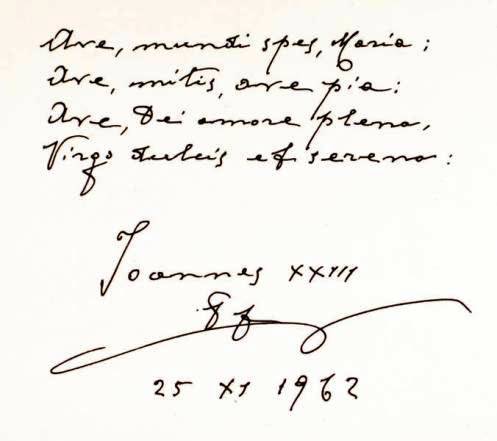 Ave, mundi spes, Maria;
Ave, mitis, ave pia:
Ave, Dei amore plena,
Virgo dulcis et serena:
Joannes XXIII
PP
25 XI 1962